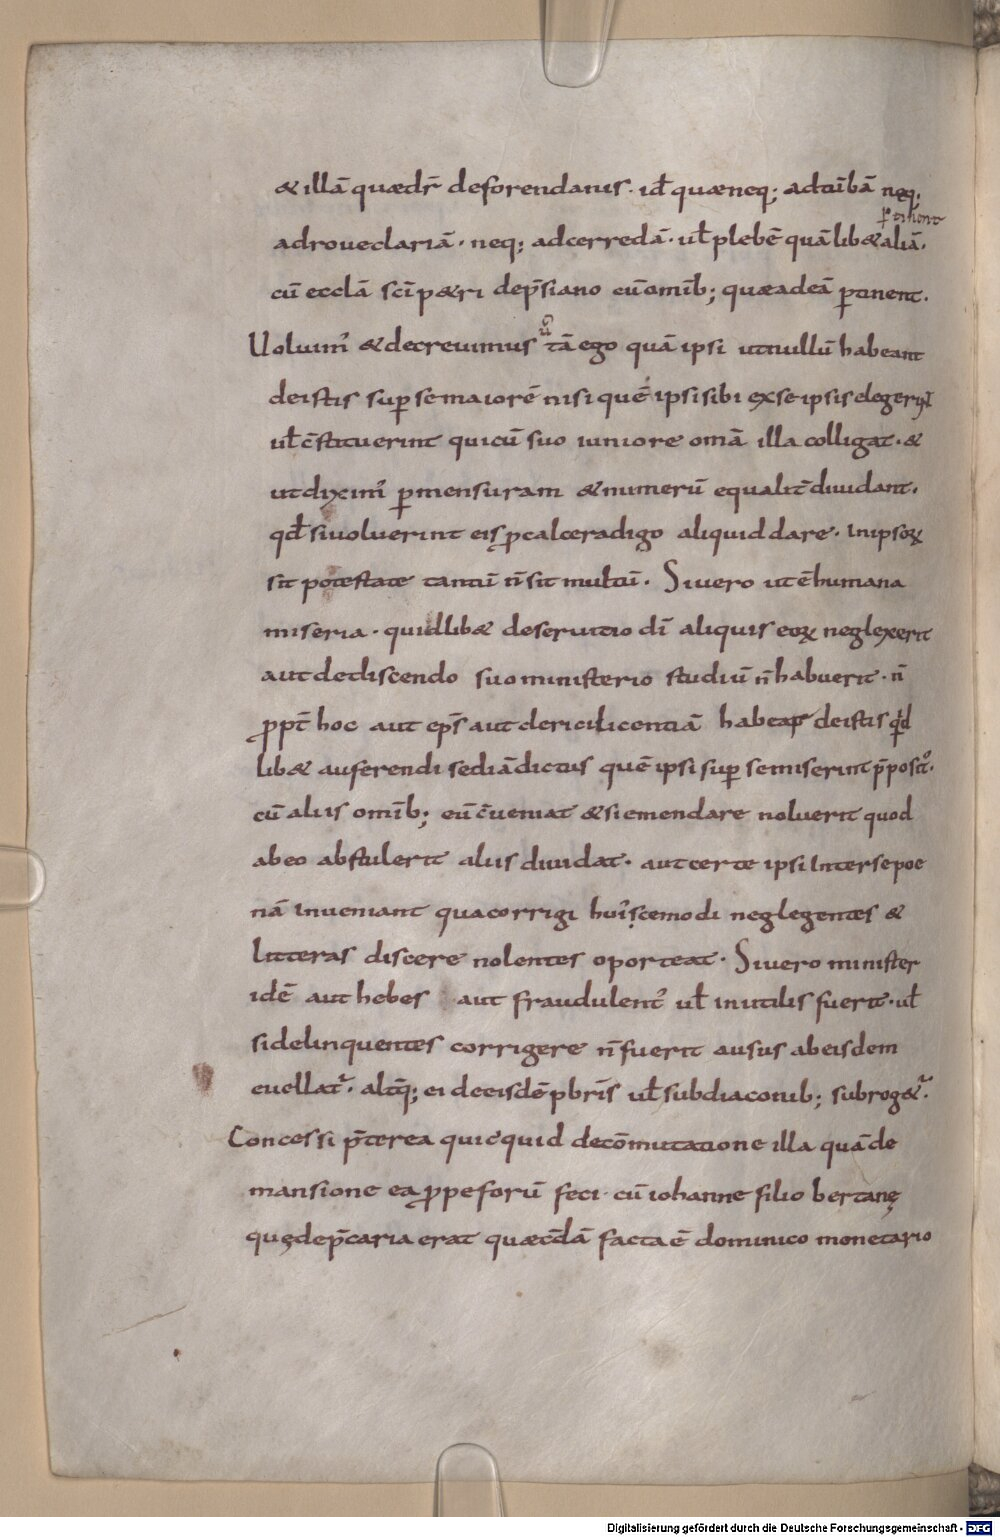 & illā quædr̄ deforendanis. id̄ quæneq; adtūbā neq;
ꝑtinent
adroueclariā. neq; adcerredā. ul̄ plebē quā lib& aliā.
cū ecclā sci̅ p&ri dep̄siano cūomīb; quæadeā ꝑtinent.
ū
Uoluim᾽ & decreuimus tā ego quā ipsi utnullū habeant
deistis suꝑ se maiorē nisi quē ipsi sibi exse ipsis elegerint
ul̄ c̄stituerint quicū suo iuniore omā illa colligat. &
utdixim᾽ ꝑmensuram & numerū equalit̄ diuidant.
qd̄ siuoluerint eis ꝓcalceradigo aliquid dare. Inipsoꝝ
sit potestate tantū n̄ sit multū. Siuero ut ē humana
miseria. quidlib& deseruitio dī aliquis eoꝝ neglexerit
aut dediscendo suo ministerio studiū n̄ habuerit. n̄
ꝓpt̄ hoc aut ep̄s aut clerici licentiā habeat deistis qd
lib& auferendi sediādictus quē ipsi suꝑ semiserint p̄posit᾽.
cū aliis omīb; eū c̄ueniat & si emendare noluerit quod
abeo abstulerit aliis diuidat. aut certe ipsi Intersepoe
nā Inueniant quacorrigi hui᾽scemodi neglegentes &
litteras discere nolentes oporteat. Siuero minister
idē aut hebes aut fraudulent᾽ ul̄ inutilis fuerit. ul̄
sidelinquentes corrigere n̄ fuerit ausus abeisdem
euellat᾽. altq̄; ei deeisdē pbr̄is ul̄ subdiaconib; subrog&᾽.
Concessi p̄terea quicquid decōmutatione illa quā de
mansione ea ꝓpeforū feci. cū iohanne filio bertanę
quędep̄caria erat quæc̄dā facta ē dominico monetario
Digitalisierung gefördert durch die Deutsche Forschungsgemeinschaft - DFG